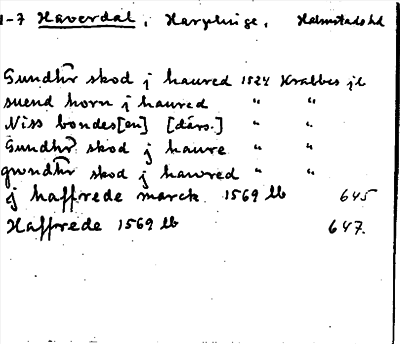 1-7 Haverdal, Harplinge, Halmstads hd
Gundhr skod j haured 1524 Krabbes jb
suend horn j haured " "
Niss bondes[en] [därs.] " "
Gundhr skod j haure " "
gwndhr skod j hawred " "
ij haffrede marck 1569 lb 645
Haffrede 1569 lb 647.